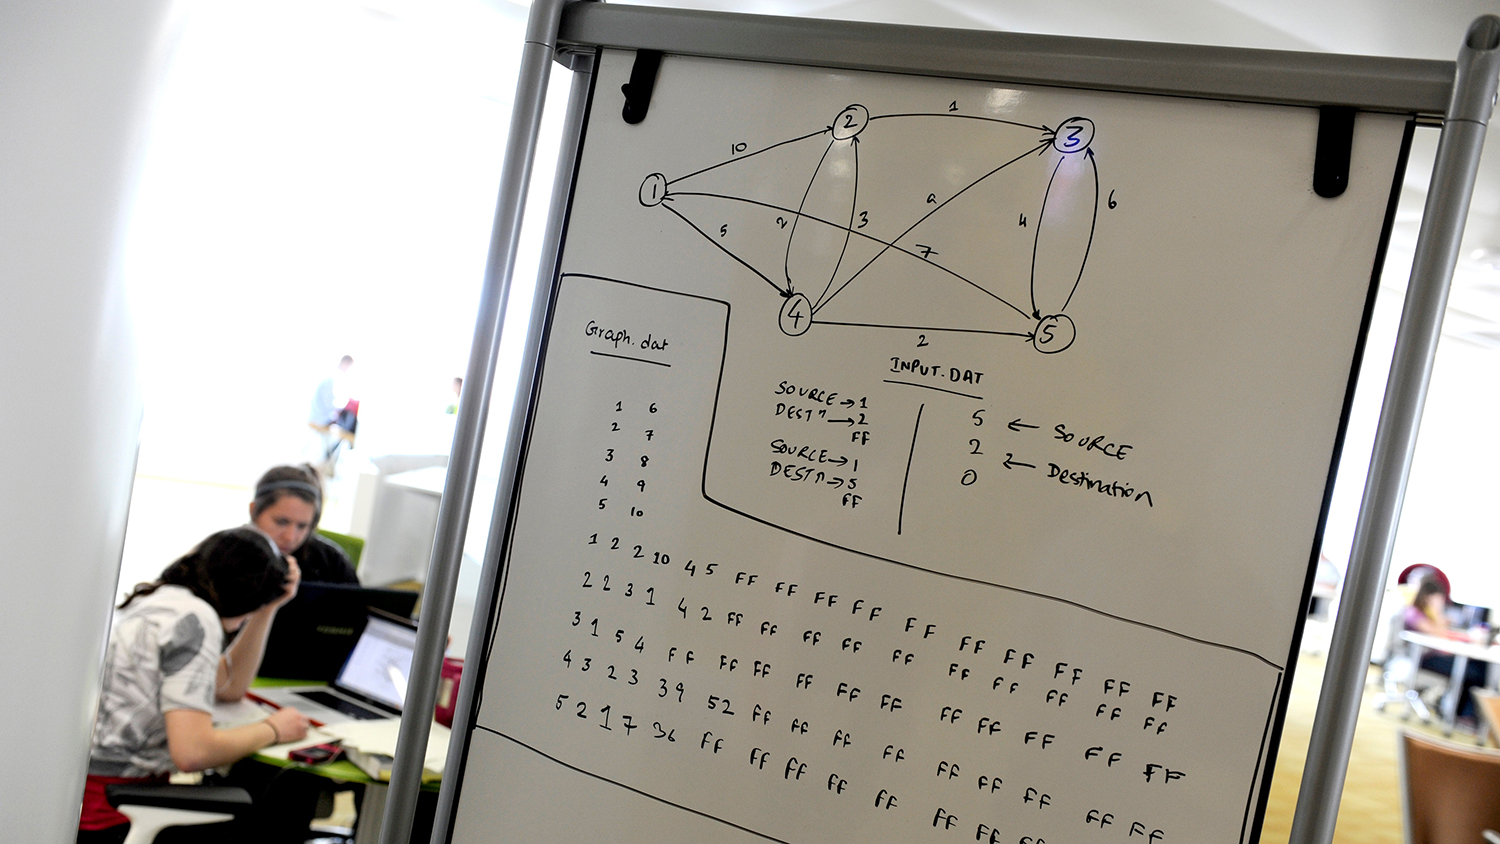 1
2
3
10
1
5
2
3
a
7
4
6
4
5
2
Graph.dat
1 6
2 7
3 8
4 9
5 10
INPUT.DAT
SOURCE→1
DESTⁿ→2
FF
SOURCE→1
DESTⁿ→5
FF
5 ← SOURCE
2 ← Destination
0
1 2 2 10 4 5 FF FF FF FF FF FF FF FF FF FF
2 2 3 1 4 2 FF FF FF FF FF FF FF FF FF FF
3 1 5 4 FF FF FF FF FF FF FF FF FF FF FF
4 3 2 3 3 9 5 2 FF FF FF FF FF FF FF FF FF
5 2 1 7 3 6 FF FF FF FF FF FF FF